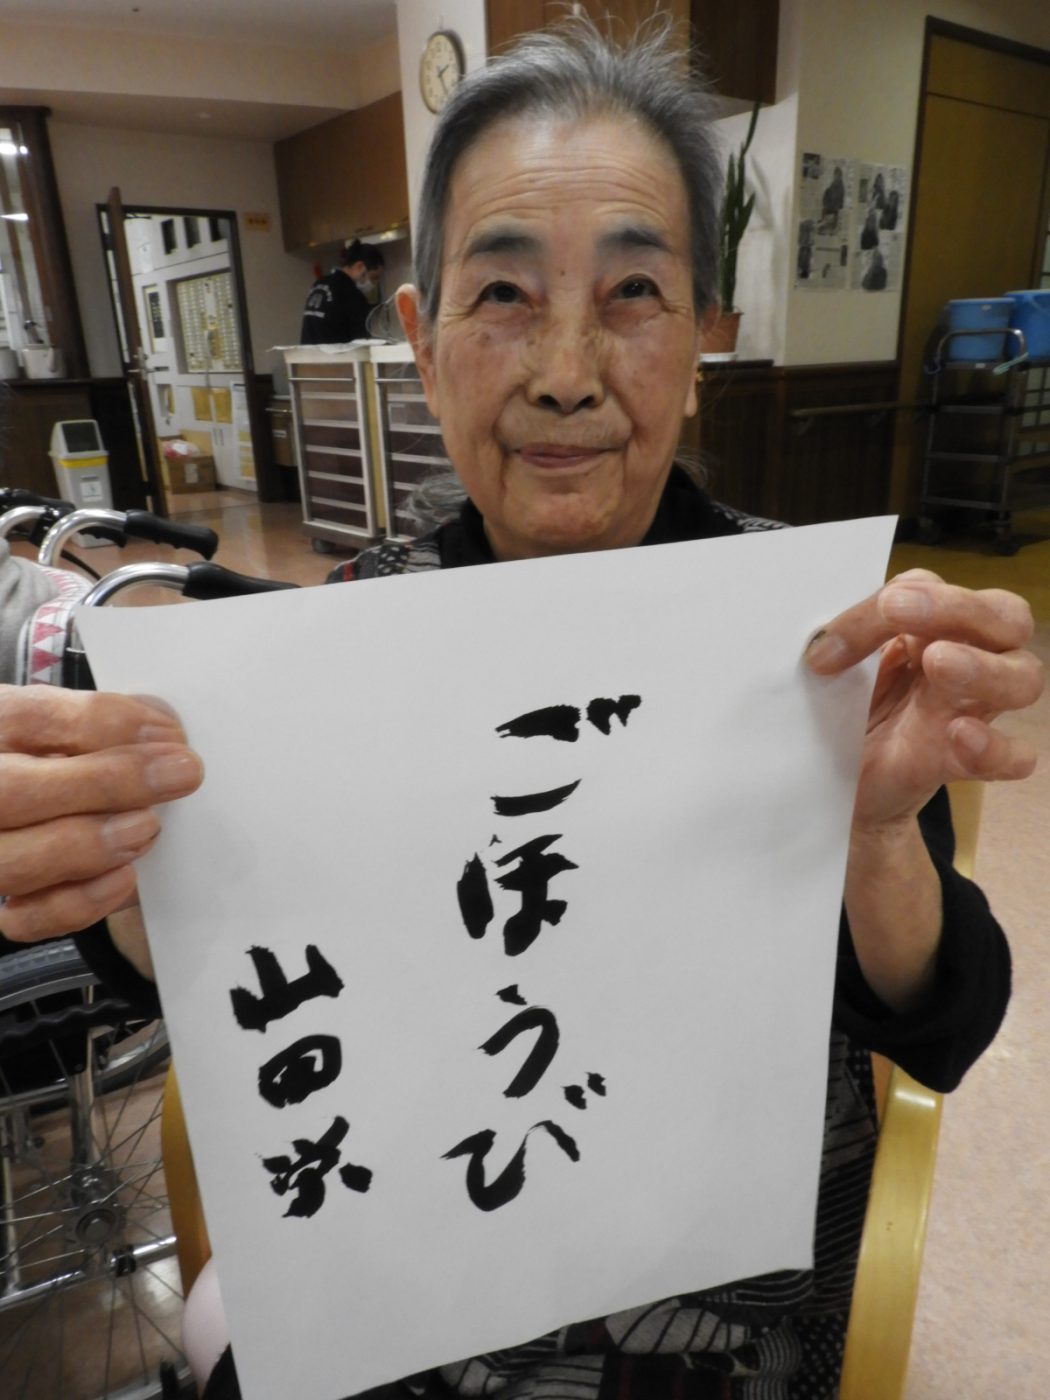 ごほうび
山田栄